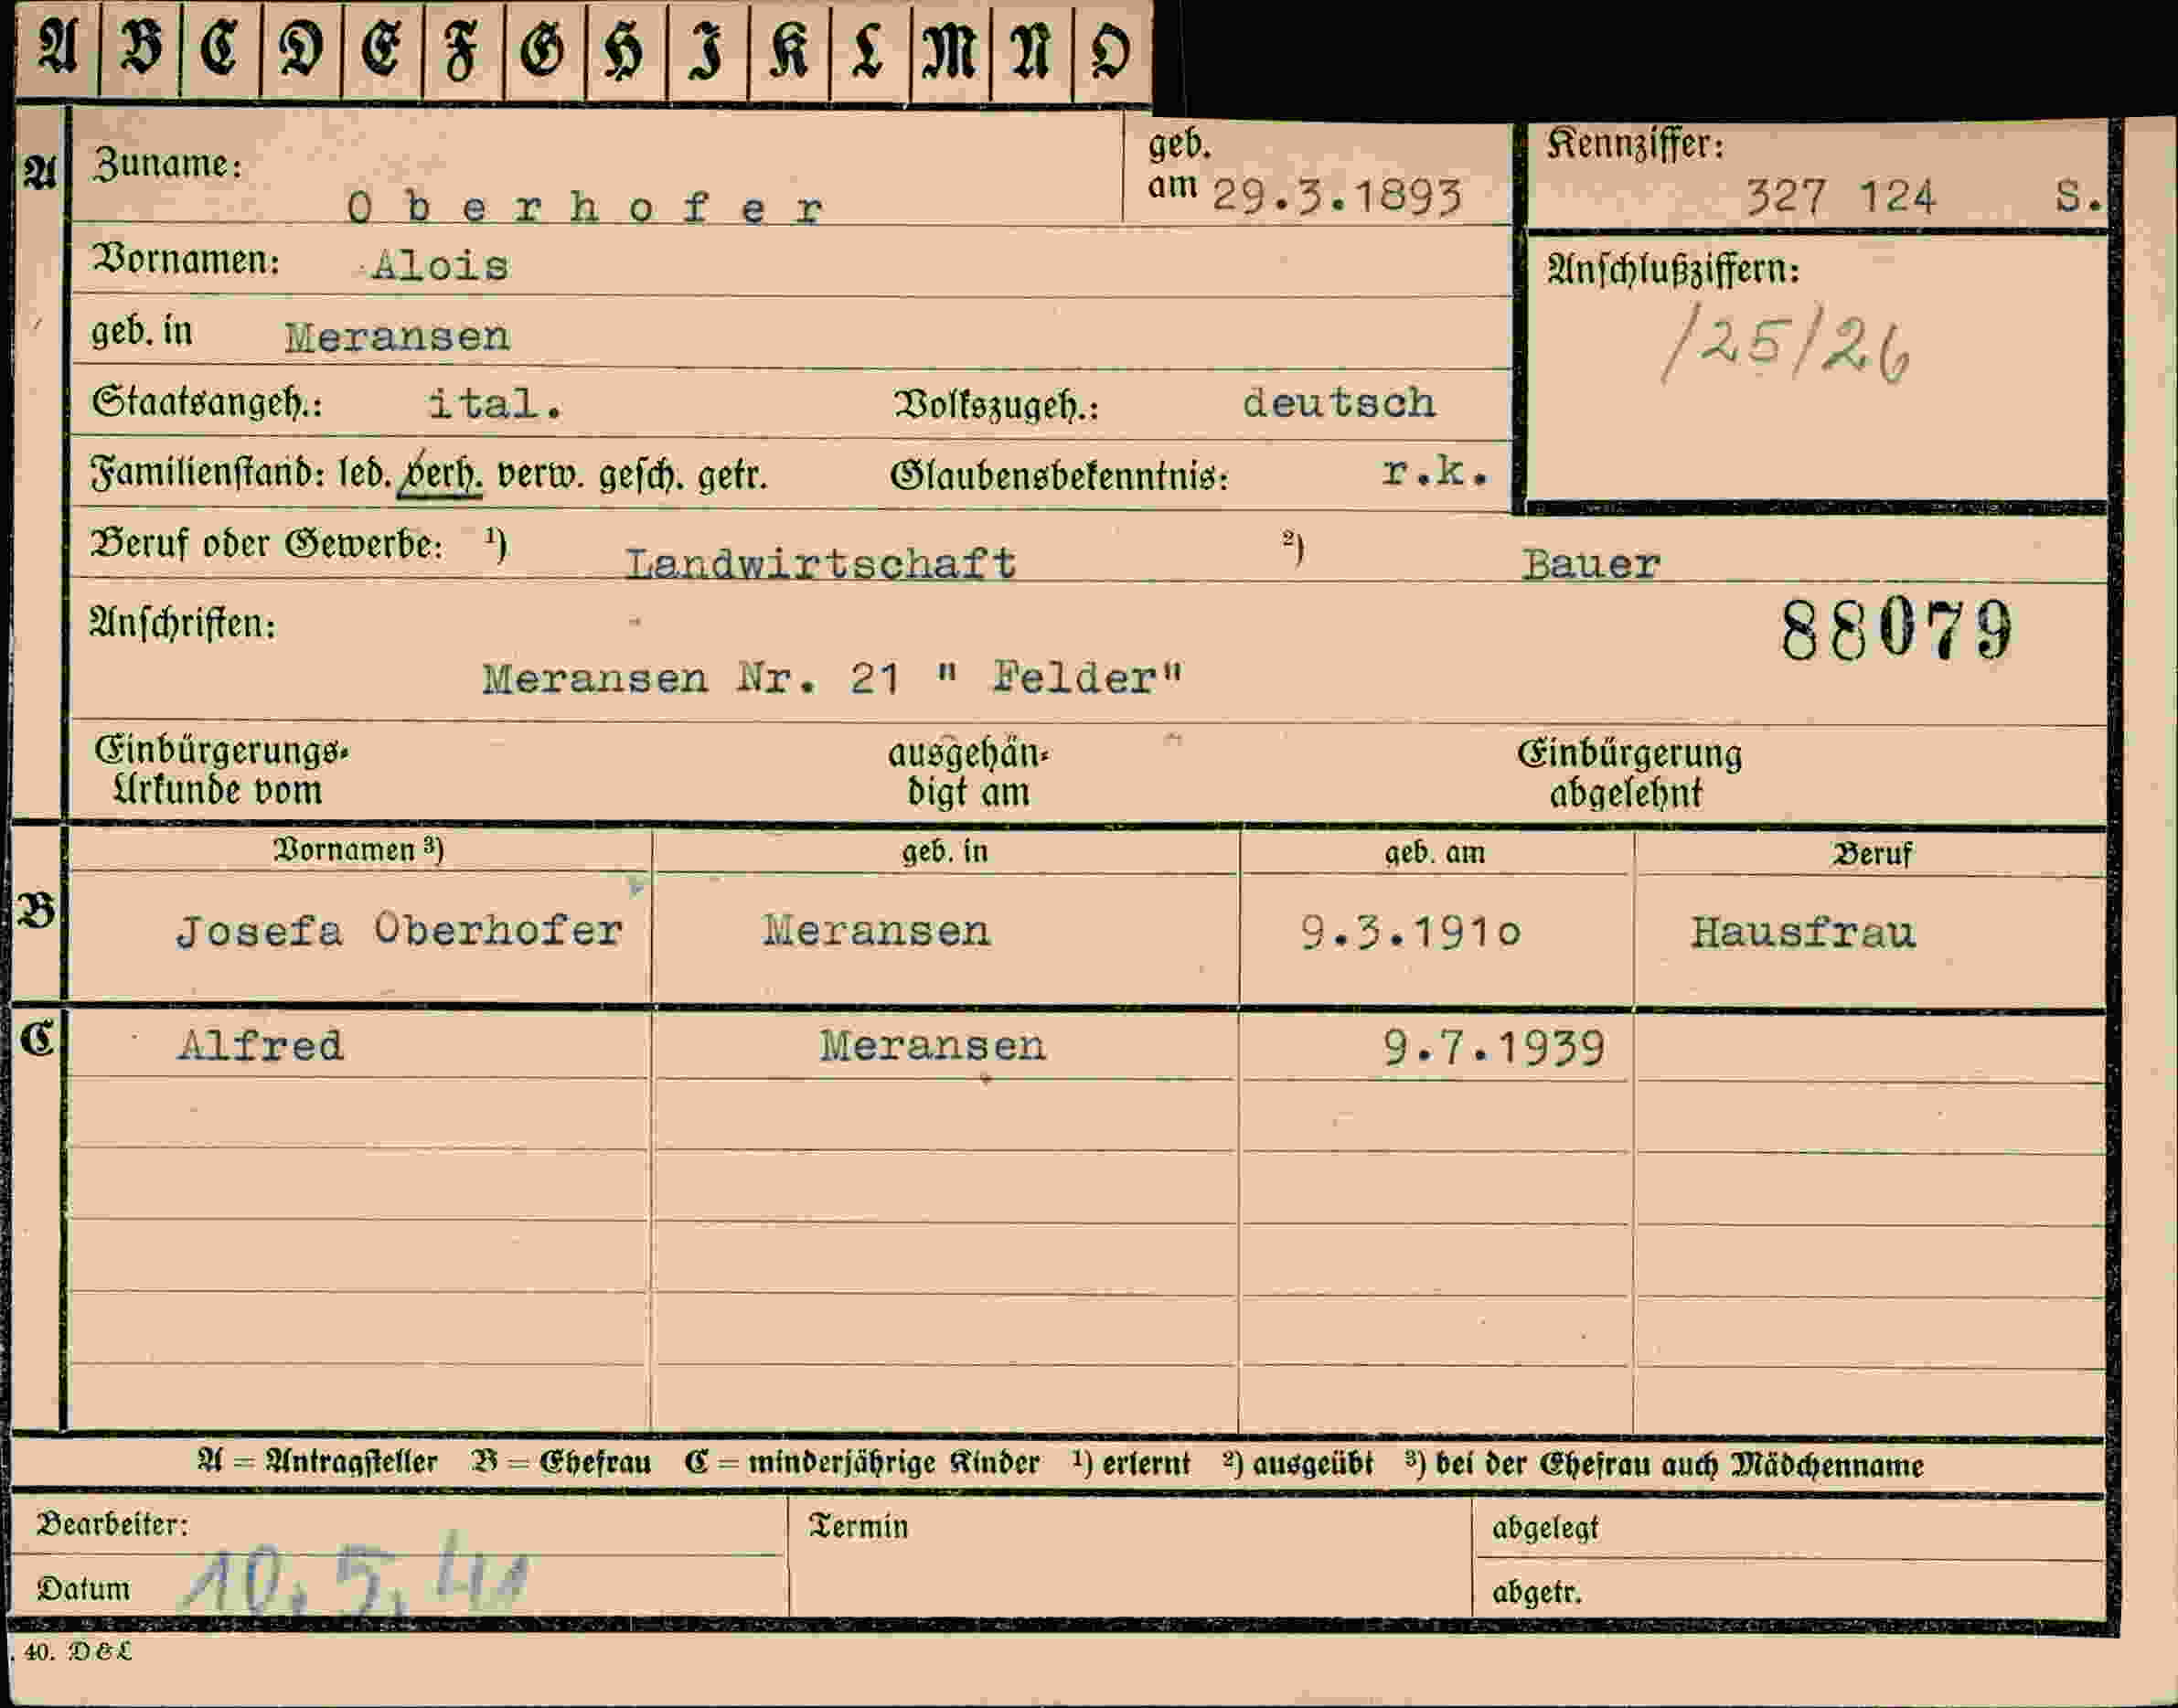 A B C D E F G H I K L M N O
A
Zuname: Oberhofer
geb. am 29.3.1893
Kennziffer: 327 124 S.
Vornamen: Alois
Anschlußziffern:
/25/26
geb. in Meransen
Staatsangeh.: ital. Volkszugeh.: deutsch
Familienstand: led. verh. verw. gesch. getr. Glaubensbekenntnis: r.k.
Beruf oder Gewerbe: ¹) Landwirtschaft ²) Bauer
Anschriften:
88079
Meransen Nr. 21 " Felder"
Einbürgerungs- ausgehän- Einbürgerung
Urkunde vom digt am abgelehnt
Vornamen ³) geb. in geb. am Beruf
B
Josefa Oberhofer Meransen 9.3.191o Hausfrau
C
Alfred Meransen 9.7.1939
A = Antragsteller B = Ehefrau C = minderjährige Kinder ¹) erlernt ²) ausgeübt ³) bei der Ehefrau auch Mädchenname
Bearbeiter: Termin abgelegt
Datum 10.5.41 abgetr.
40. D&L